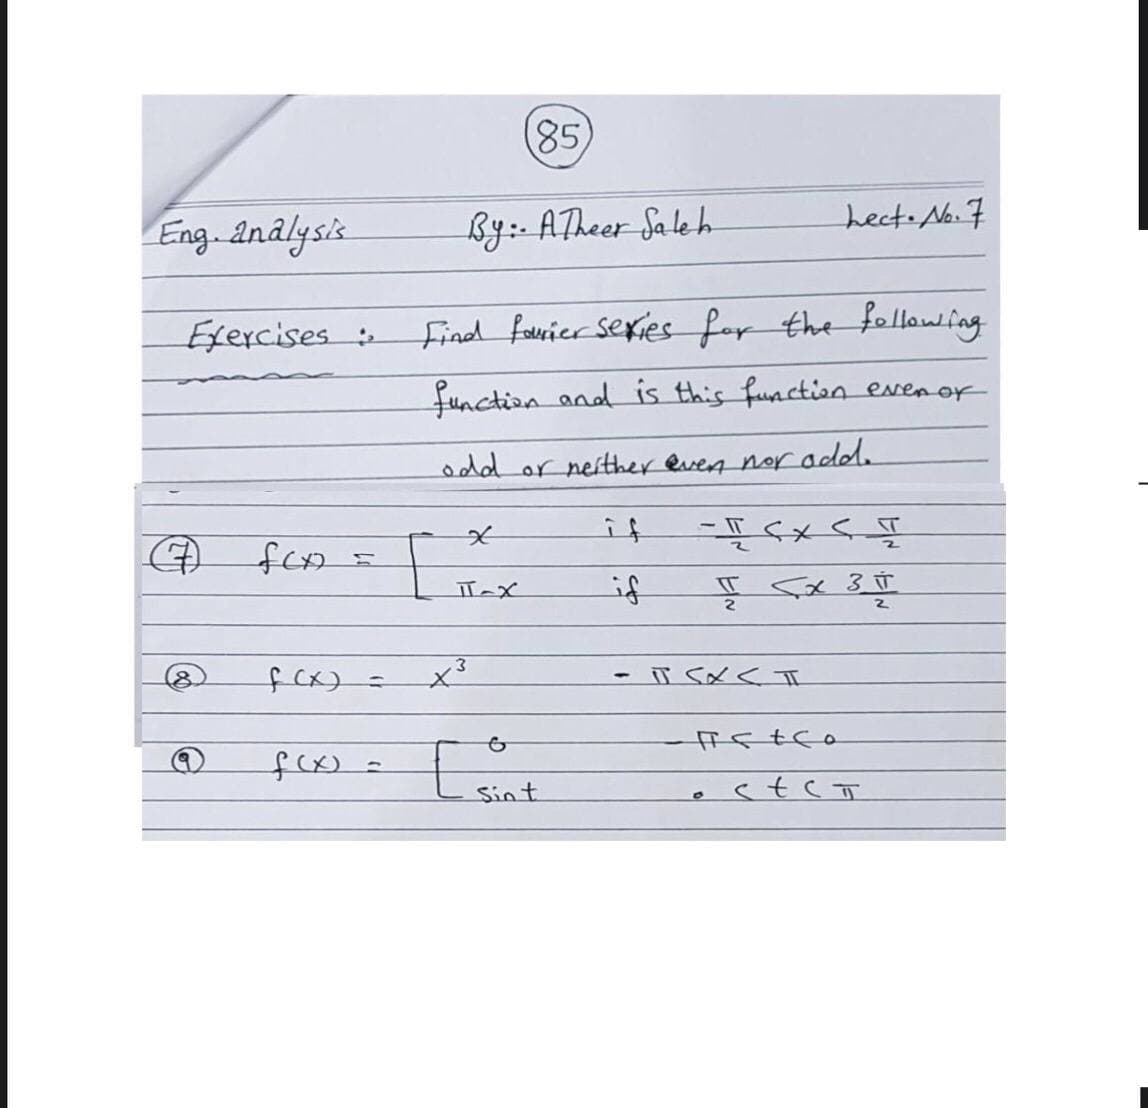 85
Eng. analysis By:- ATheer Saleh Lect. No. 7
Exercises : Find fourier series for the following
function and is this function even or
odd or neither even nor odd.
⑦ f(x) = [ x if -π/2 < x < π/2
π-x if π/2 < x 3π/2
⑧ f(x) = x³ - π < x < π
⑨ f(x) = [ 0 -π < t < 0
sint 0 < t < π